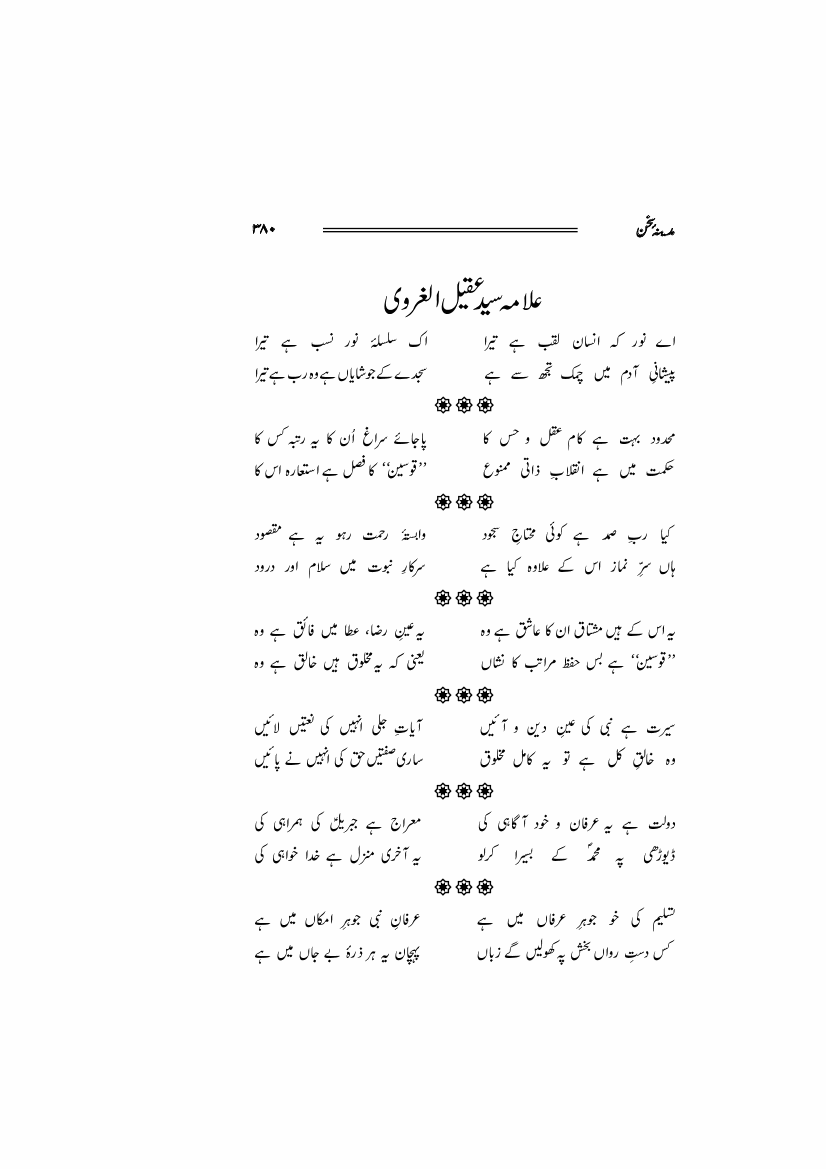 مدینۂ سخن ۳۸۰
علامہ سید عقیل الغروی
اے نور کہ انسان لقب ہے تیرا اک سلسلۂ نور نسب ہے تیرا
پیشانیِ آدم میں چمک تجھ سے ہے سجدے کے جو شایاں ہے وہ رب ہے تیرا
محدود بہت ہے کام عقل و حس کا پاجائے سراغ اُن کا یہ رتبہ کس کا
حکمت میں ہے انقلابِ ذاتی ممنوع ’’قوسین‘‘ کا فصل ہے استعارہ اس کا
کیا رب صمد ہے کوئی محتاجِ سجود وابستۂ رحمت رہو یہ ہے مقصود
ہاں سرِّ نماز اس کے علاوہ کیا ہے سرکارِ نبوت میں سلام اور درود
یہ اس کے ہیں مشتاق ان کا عاشق ہے وہ یہ عینِ رضا، عطا میں فائق ہے وہ
’’قوسین‘‘ ہے بس حفظ مراتب کا نشاں یعنی کہ یہ مخلوق ہیں خالق ہے وہ
سیرت ہے نبی کی عینِ دین و آئیں آیاتِ جلی انہیں کی نعتیں لائیں
وہ خالقِ کل ہے تو یہ کامل مخلوق ساری صفتیں حق کی انہیں نے پائیں
دولت ہے یہ عرفان و خود آگاہی کی معراج ہے جبریلؑ کی ہمراہی کی
ڈیوڑھی پہ محمدؐ کے بسیرا کرلو یہ آخری منزل ہے خدا خواہی کی
تسلیم کی خو جوہرِ عرفاں میں ہے عرفانِ نبی جوہرِ امکاں میں ہے
کس دستِ رواں بخش پہ کھولیں گے زباں پہچان یہ ہر ذرۂ بے جاں میں ہے